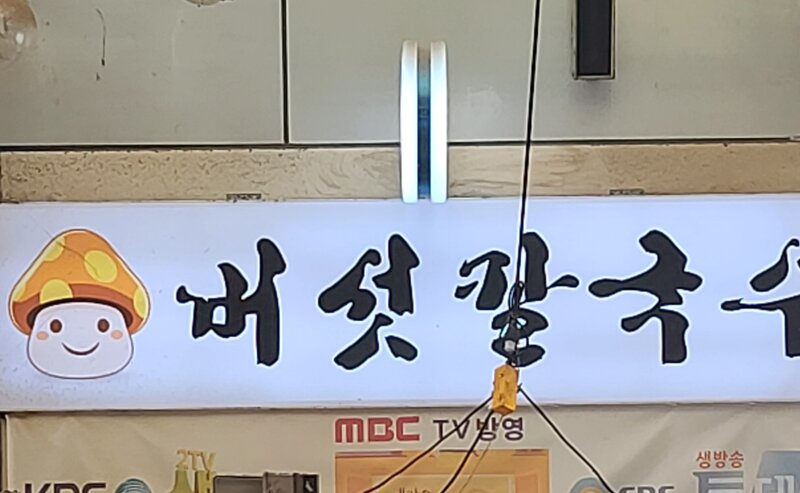 버섯칼국수
MBC TV방영
2TV 생
생방송
KBS SBS 투데